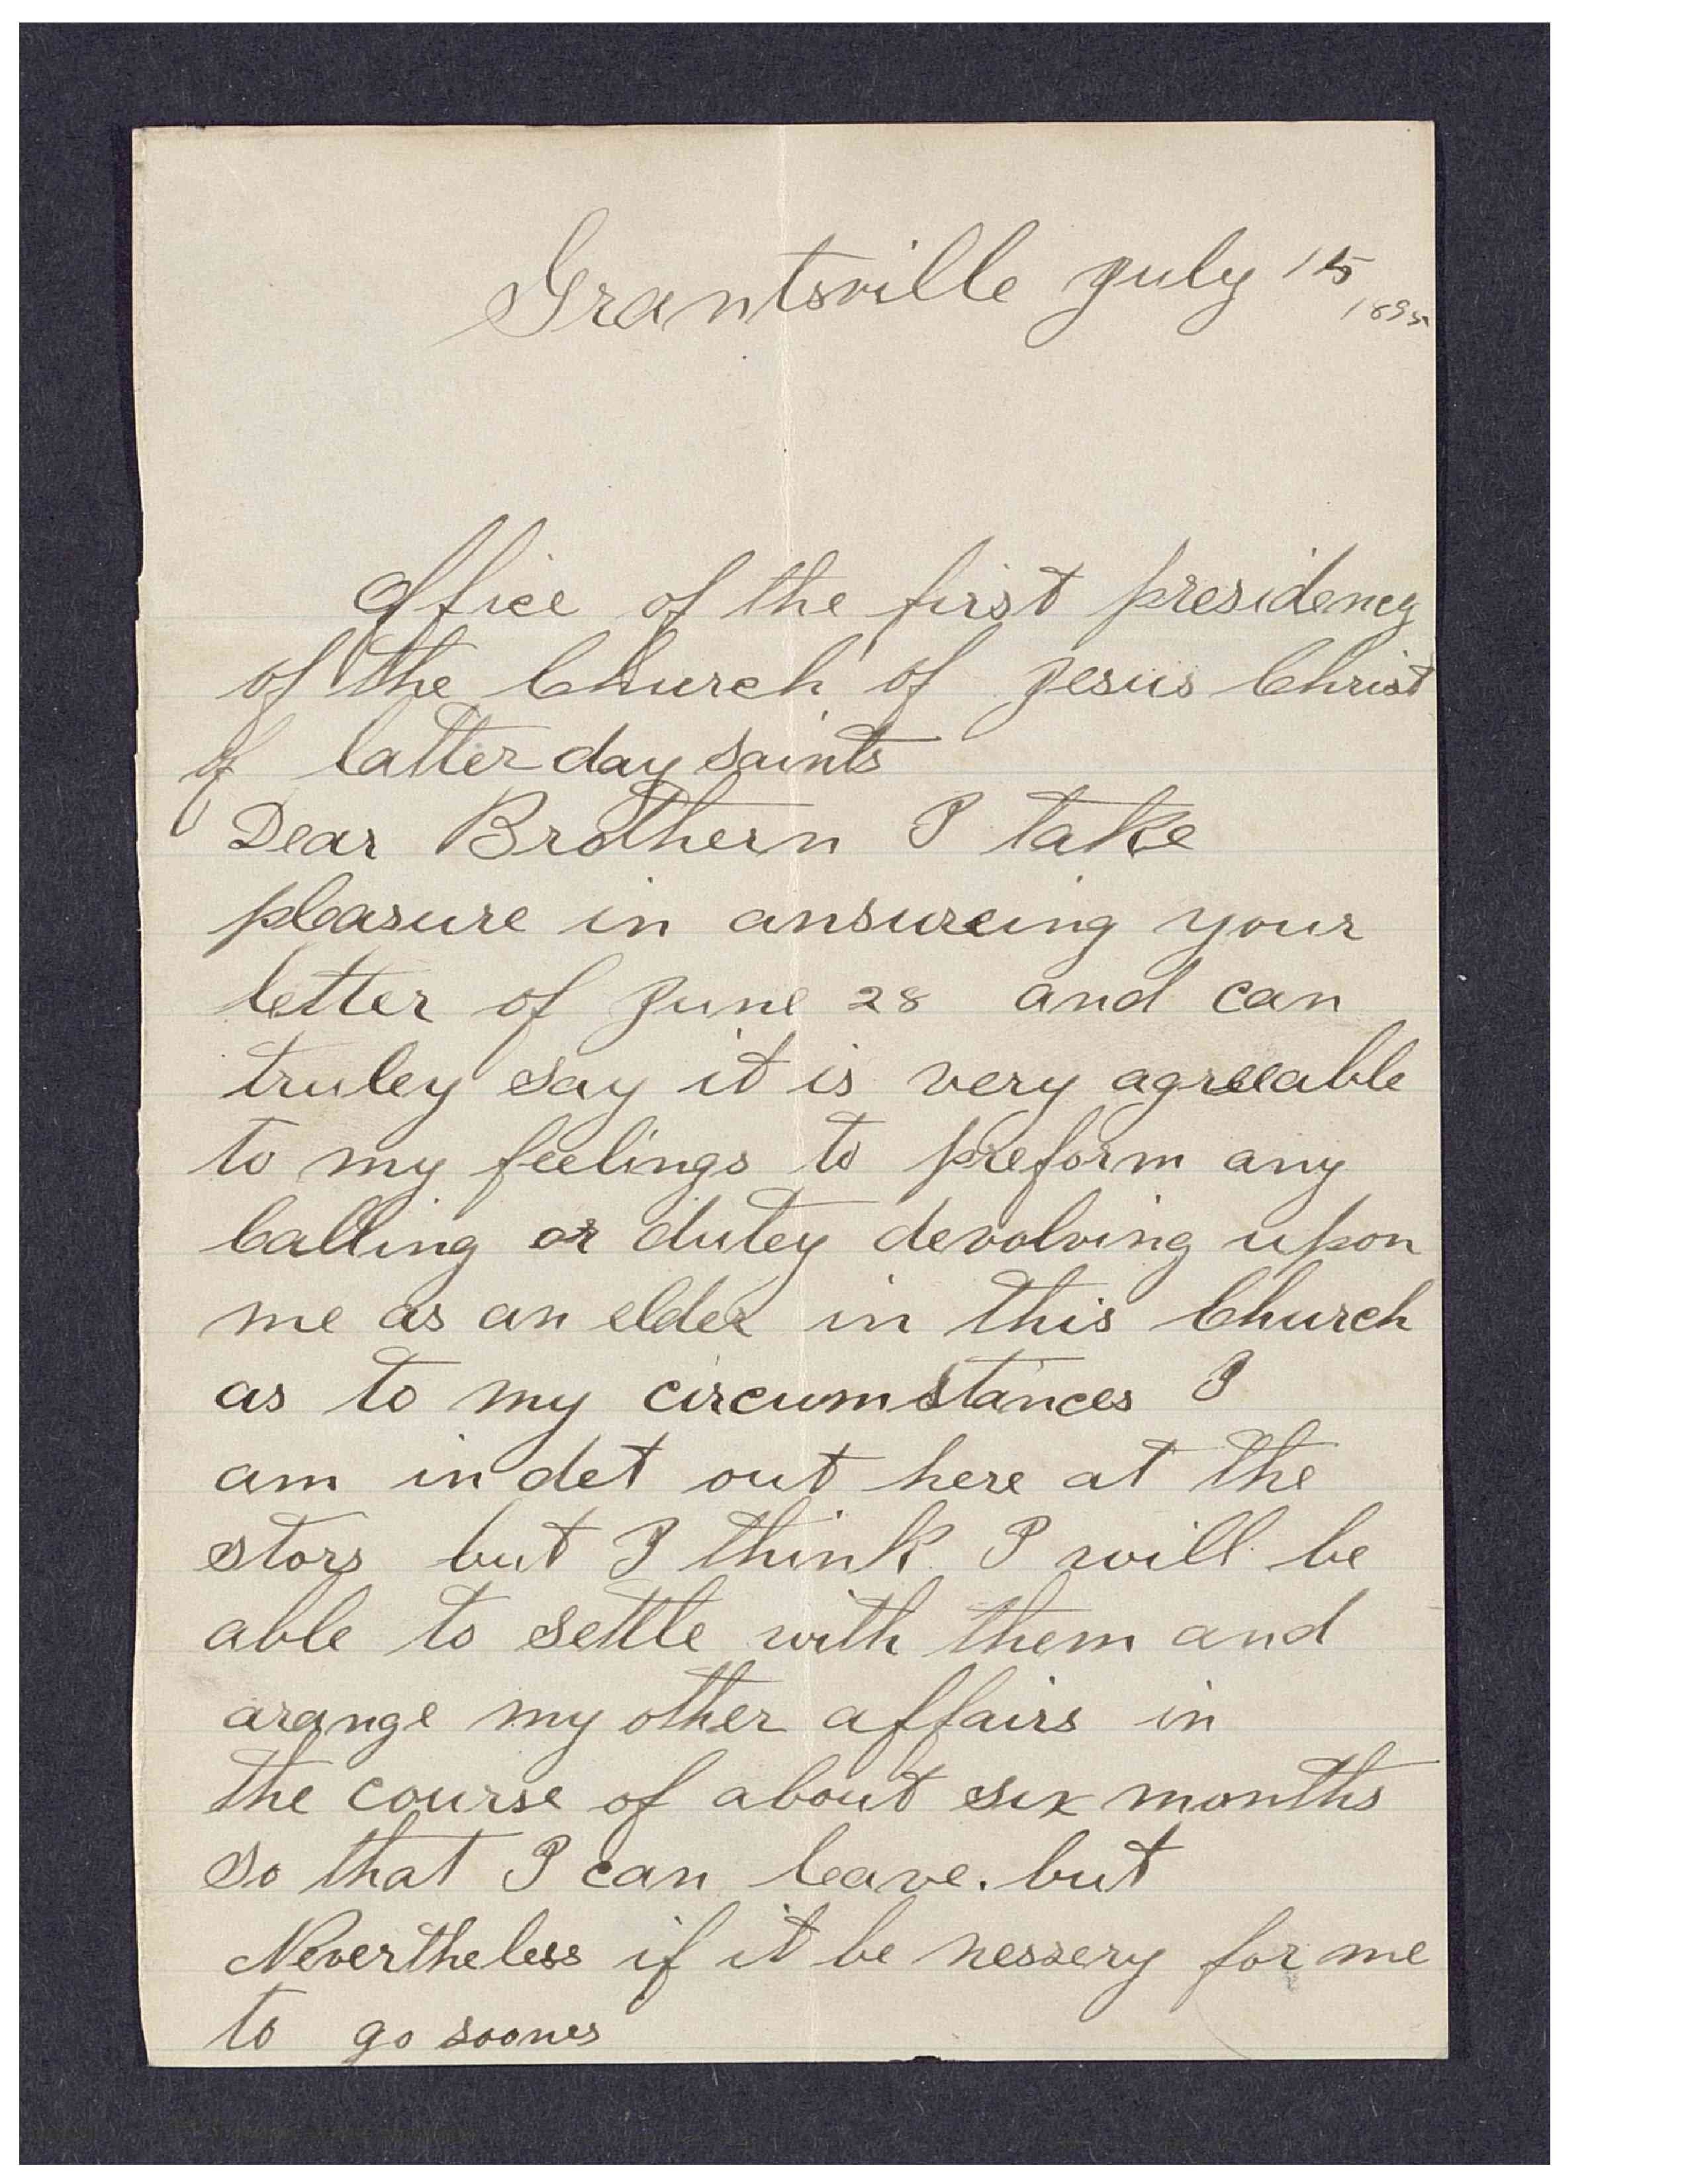 Grantsville july 15
1895
Office of the first presidency
of the Church of jesus Christ
of latter day saints
Dear Brothern I take
pleasure in ansureing your
letter of june 28 and can
truley say it is very agreeable
to my feelings to preform any
Calling or dutey devolving upon
me as an elder in this Church
as to my circumstances I
am in det out here at the
stors but I think I will be
able to settle with them and
arange my other affairs in
the course of about six months
so that I can leave. but
Nevertheless if it be nessery for me
to go sooner